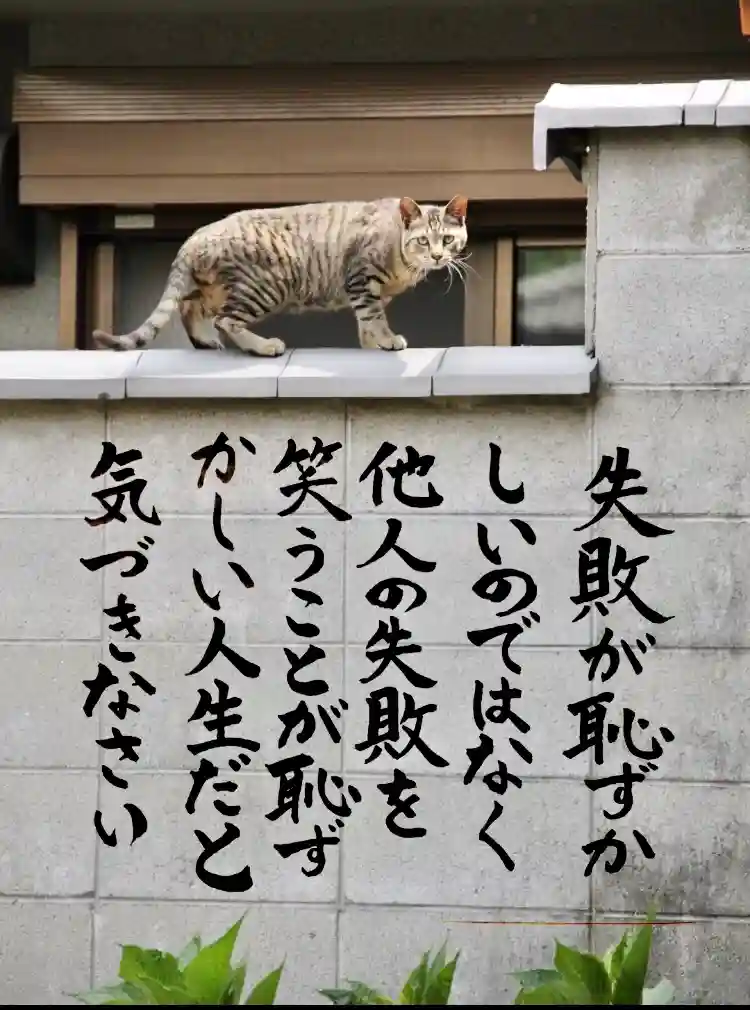 失敗が恥ずか
しいのではなく
他人の失敗を
笑うことが恥ず
かしい人生だと
気づきなさい